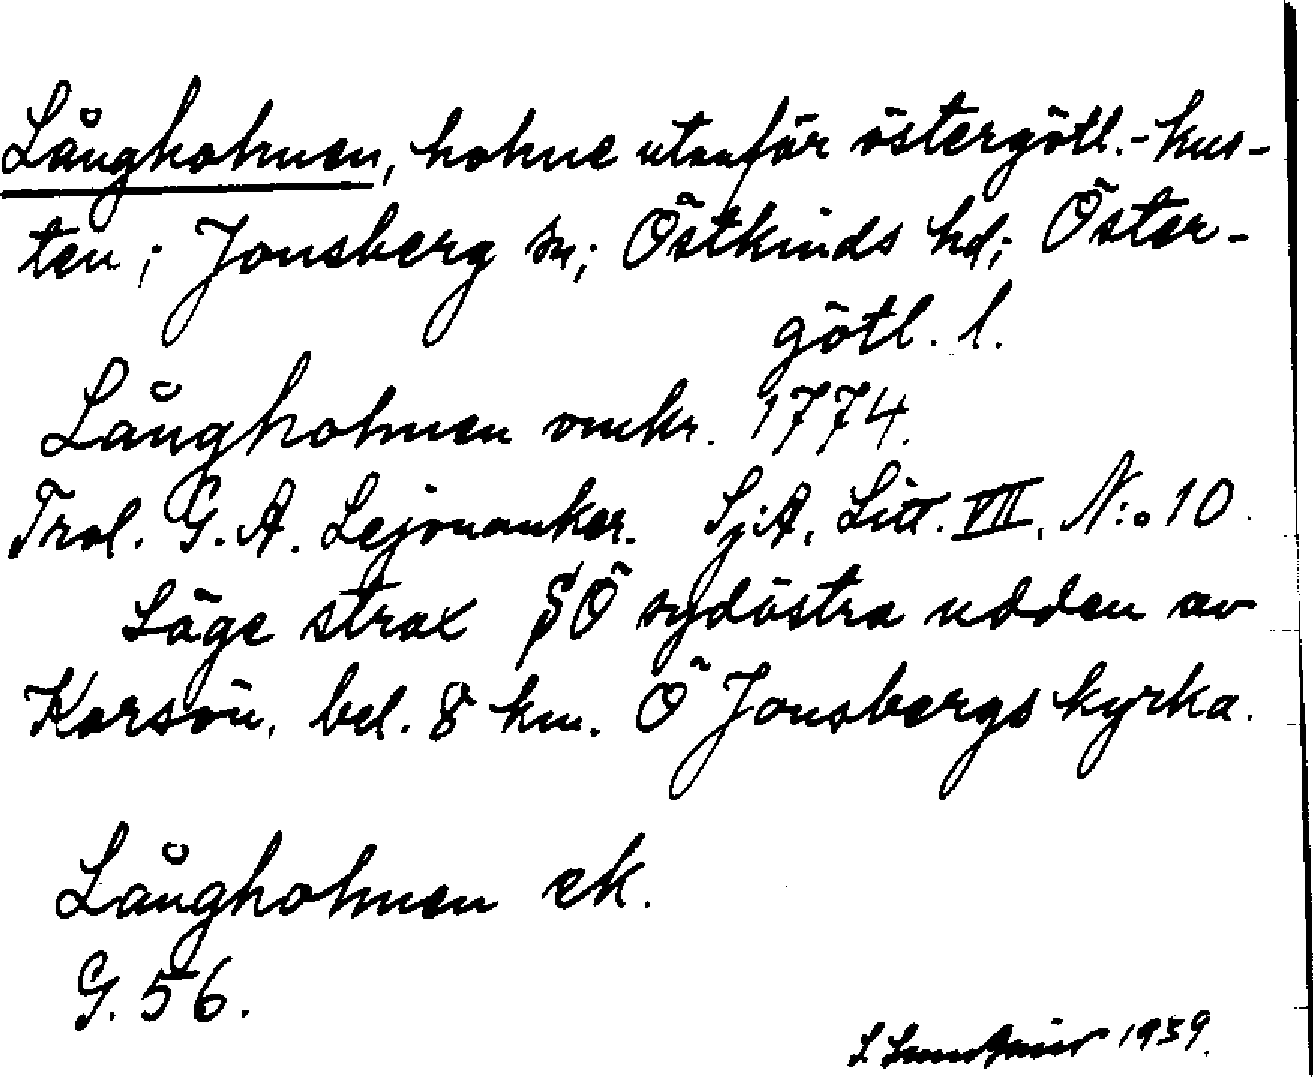 Långholmen, holme utanför östergötl.-kus-
ten; Jonsberg sn; Östkinds hd; Öster-
götl. l.
Långholmen omkr. 1774.
Trol. G. A. Lejonanker. Sj:A. Litt. VII. N:o 10.
Läge strax Ö sydöstra udden av
Korsön, bel. 8 km. Ö Jonsbergs kyrka.
Långholmen ek.
G. 56.
S. 1939.